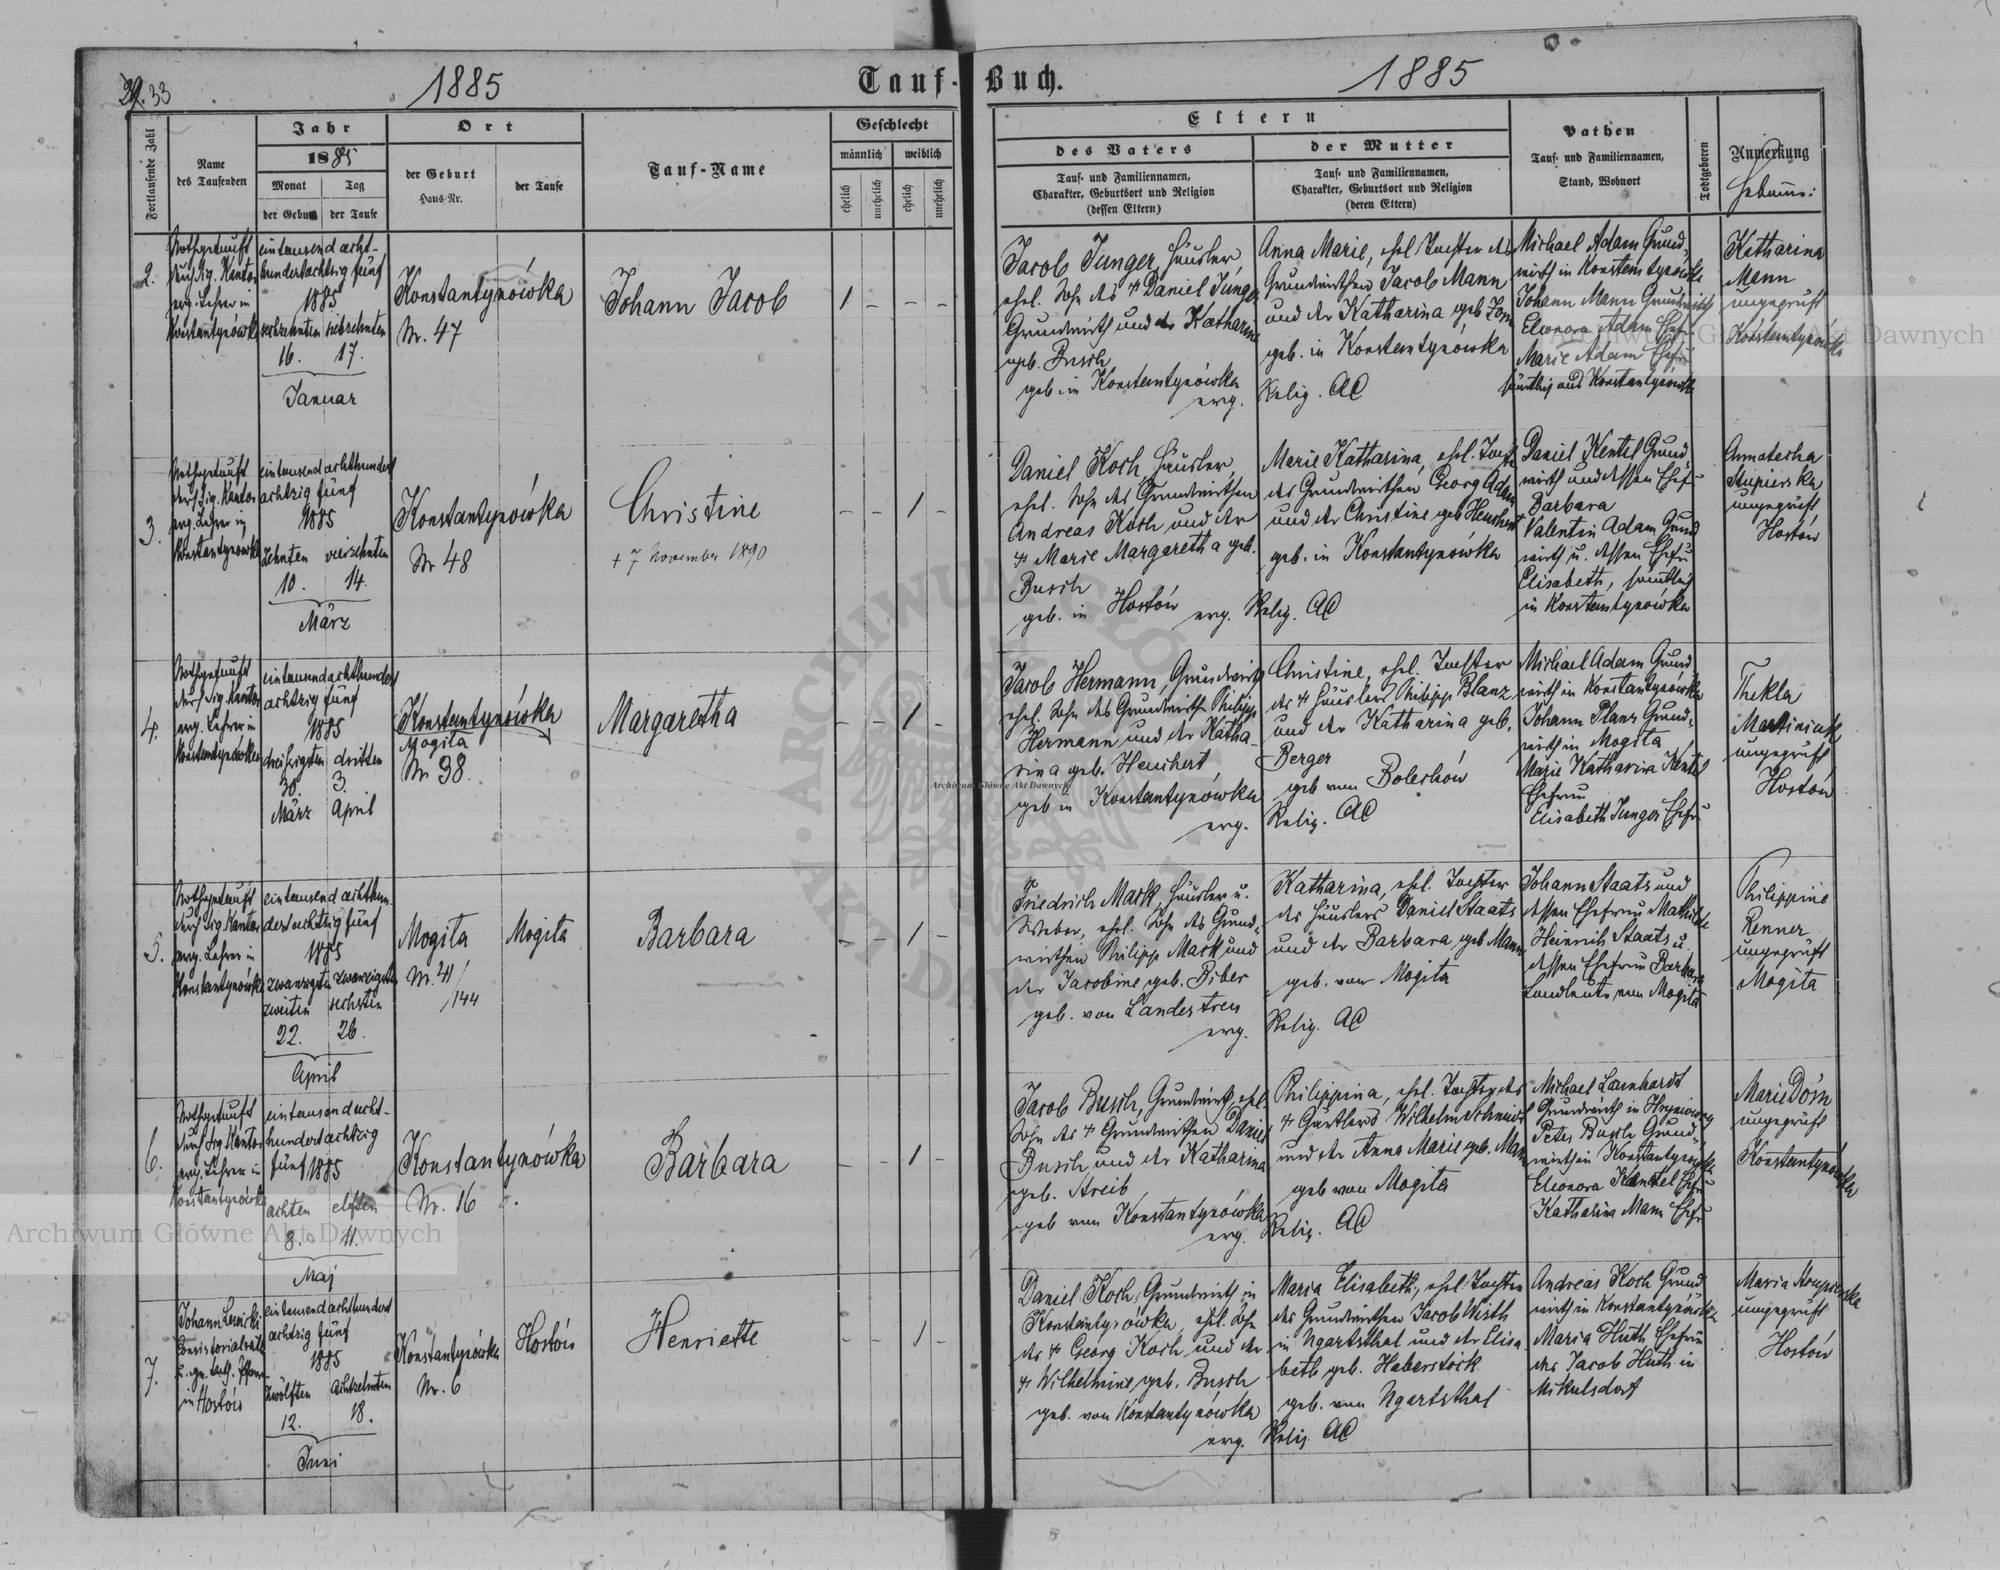 29. 33
1885
Tauf-Buch.
1885
Fortlaufende Zahl
Name
des Taufenden
Jahr
1885
Monat
Tag
der Geburt
der Taufe
Ort
der Geburt
Haus-Nr.
der Taufe
Tauf-Name
Geschlecht
männlich
weiblich
ehelich
unehelich
ehelich
unehelich
Eltern
des Vaters
Tauf- und Familiennamen,
Charakter, Geburtsort und Religion
(dessen Eltern)
der Mutter
Tauf- und Familiennamen,
Charakter, Geburtsort und Religion
(deren Eltern)
Pathen
Tauf- und Familiennamen,
Stand, Wohnort
Todtgeboren
Anmerkung
2.
Nothgetauft
Kantor
evg. Lehrer in
Konstantynówka
eintausend acht-
hundertachtzig fünf
1885
sechzehnten siebzehnten
16. 17.
Januar
Konstantynówka
Nr. 47
Johann Jacob
1 - - -
Jacob Junger, Häusler
ehel. Sohn des + Daniel Junger
Grundwirth und der Katharine
geb. Busch
geb in Konstantynówka
evg.
Anna Marie, ehel Tochter des
Grundwirthen Jacob Mann
und der Katharina geb
geb. in Konstantynówka
Relig. AC
Michael Adam Grund-
wirth in Konstantynówka
Johann Mann Grundwirth
Eleonora Adam Ehefr
Marie Adam Ehefr
aus Konstantynówka
Katharina
Mann
ungeprüft
Konstantynówka
3.
Nothgetauft
durch Sig. Kantor
evg. Lehrer in
Konstantynówka
eintausend achthundert
achtzig fünf
1885
zehnten vierzehnten
10. 14.
März
Konstantynówka
Nr 48
Christine
+ 7 November 1890
- - 1 -
Daniel Koch, Häusler,
ehel. Sohn des Grundwirthen
Andreas Koch und der
+ Marie Margaretha geb.
Busch
geb. in Hostów
evg.
Marie Katharina, ehel. Tocht
des Grundwirthen Georg Adam
und der Christine geb Heuchert
geb. in Konstantynówka
Relig. AC
Daniel Kentel Grund-
wirth und dessen Ehefr
Barbara
Valentin Adam Grund
wirth u. dessen Ehefr
Elisabeth, sämtlich
in Konstantynówka
Stupierska
ungeprüft
Hostów
4.
Nothgetauft
durch Sig. Kantor
evg. Lehrer in
Konstantynówka
eintausendachthundert
achtzig fünf
1885
dreißigsten dritten
30. 3.
März April
Konstantynówka
Mogiła
Nr 38.
Margaretha
- - 1 -
Jacob Hermann, Grundwirth
ehel. Sohn des Grundwirth Philipp
Hermann und der Katha-
rina geb. Heuchert
geb in Konstantynówka
evg.
Christine, ehel. Tochter
des + Häuslers Philipp Blanz
und der Katharina geb.
Berger
geb von Bolechów
Relig. AC
Michael Adam Grund-
wirth in Konstantynówka
Johann Planz Grund-
wirth in Mogiła
Marie Katharina Kentel
Ehefrau
Elisabeth Junger Ehefr
Thekla
ungeprüft
Hostów
5.
Nothgetauft
durch Sig Kantor
evg. Lehrer in
Konstantynówka
eintausend achthun-
dertachtzig fünf
1885
zwanzigsten zwanzigsten
zweiten sechsten
22. 26.
April
Mogiła
Nr. 41/
/144
Mogiła
Barbara
- - 1 -
Friedrich Mack, Häusler u.
Weber, ehel. Sohn des Grund-
wirthen Philipp Mack und
der Jacobine geb. Biber
geb. von Landestreu
evg.
Katharina, ehel. Tochter
des Häuslers Daniel Staats
und der Barbara, geb Mann
geb. von Mogiła
Relig. AC
Johann Staats und
dessen Ehefrau Mathilde
Heinrich Staats u.
dessen Ehefrau Barbara
Landleute von Mogiła
Philippine
Renner
ungeprüft
Mogiła
6.
Nothgetauft
durch Sig Kantor
evg. Lehrer in
Konstantynówka
eintausendacht-
hundertachtzig
fünf 1885
achten elften
8. 11.
Maj
Konstantynówka
Nr. 16
Barbara
- - 1 -
Jacob Busch, Grundwirth, ehel.
Sohn des + Grundwirthen Daniel
Busch und der Katharina
geb. Streib
geb von Konstantynówka
evg.
Philippina, ehel. Tochter des
+ Gärtlers Wilhelm Schmidt
und der Anna Marie geb. Mann
geb von Mogiła
Relig. AC
Michael Lanhardt
Grundwirth in
Peter Busch Grund-
wirth in Konstantynówka
Eleonora Kentel Ehefr
Katharina Mann Ehefr
Marie Dorn
ungeprüft
Konstantynówka
7.
Johann Lewicki
Consistorialrath
in Hostów
eintausend achthundert
achtzig fünf
1885
zwölften achtzehnten
12. 18.
Juni
Konstantynówka
Nr. 6
Hostów
Henriette
- - 1 -
Daniel Koch, Grundwirth in
Konstantynówka, ehel. Sohn
des + Georg Koch und der
+ Wilhelmine geb. Busch
geb. von Konstantynówka
evg.
Maria Elisabeth, ehel. Tochter
des Grundwirthen Jacob Wirth
in Ugartsthal und der Elisa
beth geb. Haberstock
geb. von Ugartsthal
Relig. AC
Andreas Koch Grund
wirth in Konstantynówka
Maria Huth Ehefrau
des Jacob Huth in
Mikulsdorf
Maria Stupierska
ungeprüft
Hostów
Archiwum Główne Akt Dawnych
Archiwum Główne Akt Dawnych
Archiwum Główne Akt Dawnych